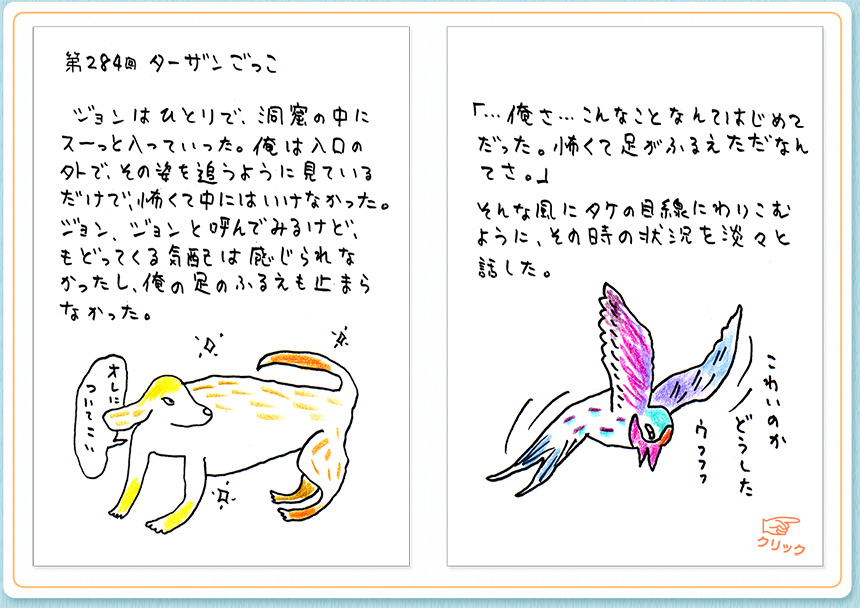 第284回 ターザンごっこ
ジョンはひとりで、洞窟の中に
スーっと入っていった。俺は入口の
外で、その姿を追うように見ている
だけで、怖くて中にはいけなかった。
ジョン、ジョンと呼んでみるけど、
もどってくる気配は感じられな
かったし、俺の足のふるえも止まら
なかった。
オレに
ついてこい
「…俺さ…こんなことなんてはじめて
だった。怖くて足がふるえてただなん
てさ。」
そんな風にタケの目線にわりこむ
ように、その時の状況を淡々と
話した。
こわいのか
どうした
ウフフッ
クリック